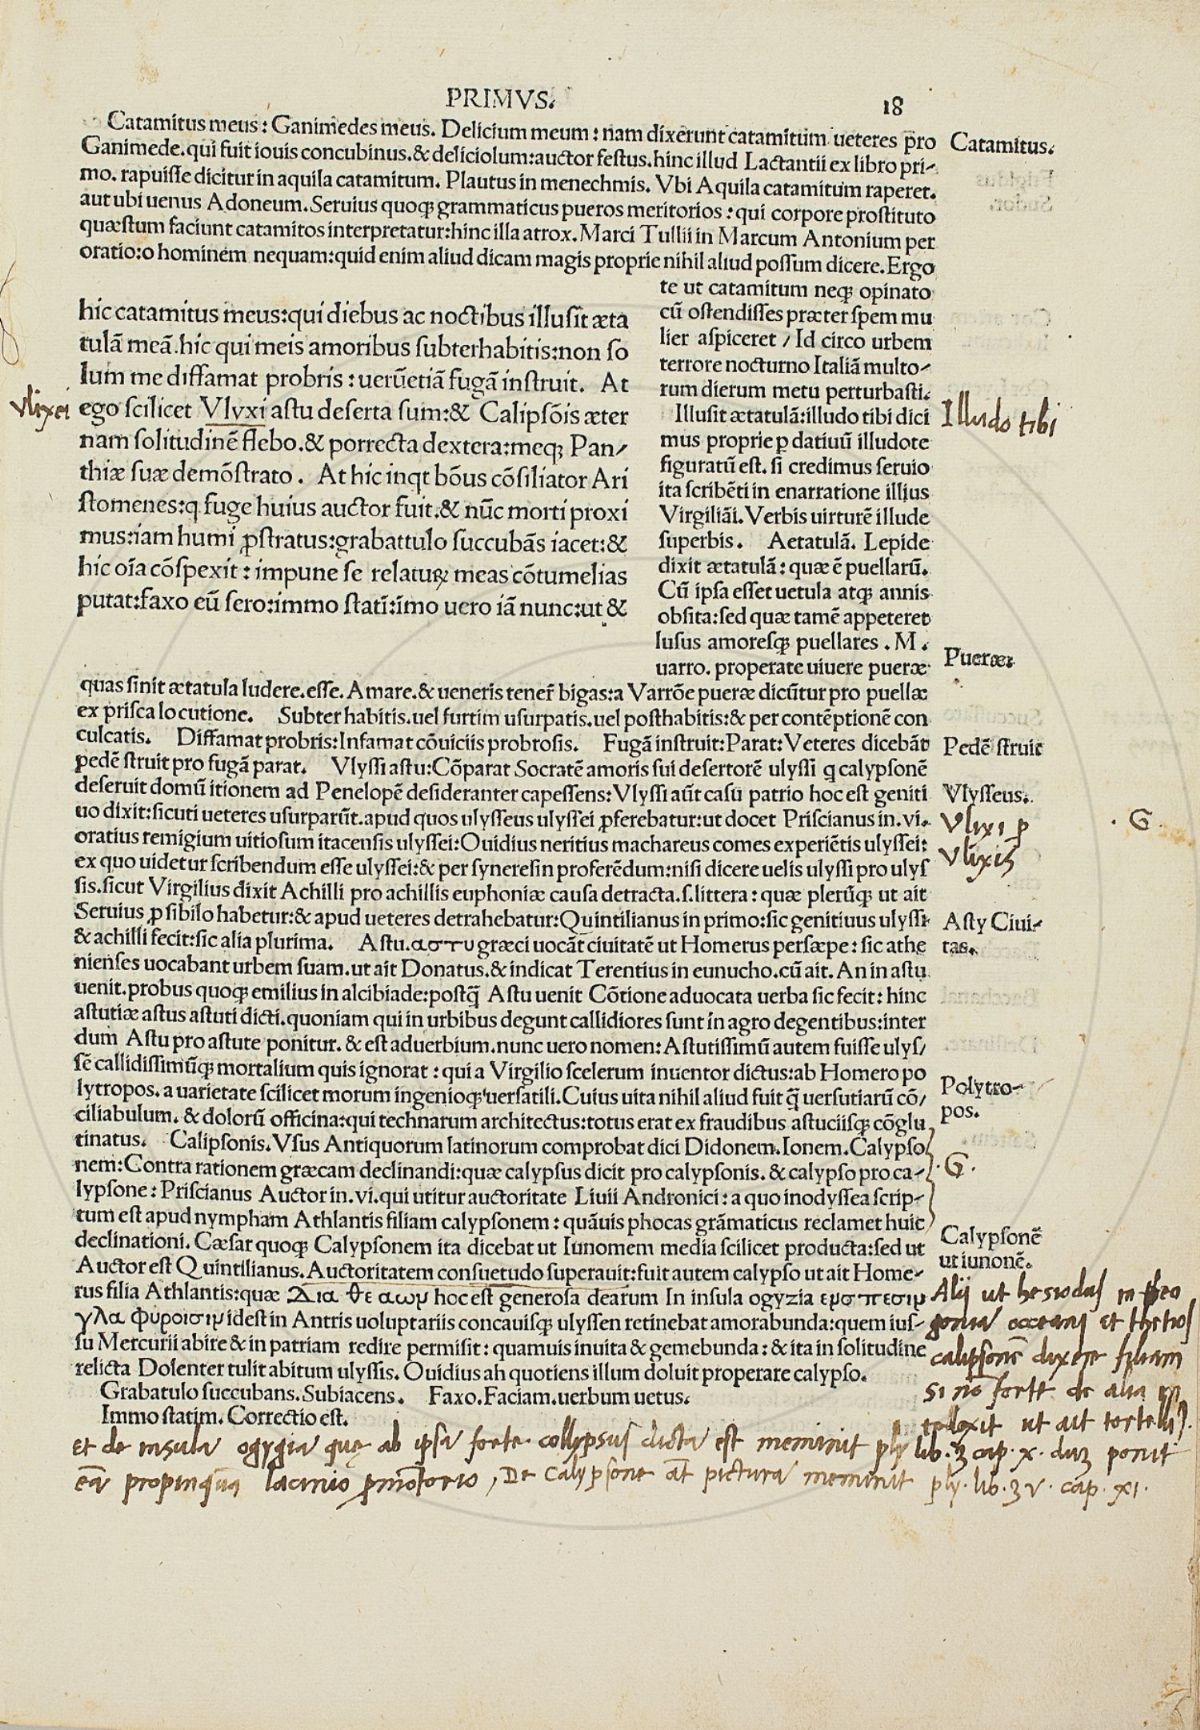 PRIMVS.
18
Catamitus meus: Ganimedes meus. Delicium meum: nam dixerunt catamitum ueteres pro
Catamitus.
Ganimede.qui fuit iouis concubinus.& deliciolum:auctor festus.hinc illud Lactantii ex libro pri-
mo. rapuisse dicitur in aquila catamitum. Plautus in menechmis. Vbi Aquila catamitum raperet.
aut ubi uenus Adoneum. Seruius quoqꝫ grammaticus pueros meritorios: qui corpore prostituto
quæstum faciunt catamitos interpretatur:hinc illa atrox. Marci Tullii in Marcum Antonium per
oratio:o hominem nequam:quid enim aliud dicam magis proprie nihil aliud possum dicere. Ergo
hic catamitus meus:qui diebus ac noctibus illusit æta
tulã meã.hic qui meis amoribus subterhabitis:non so
lum me diffamat probris: uerũetiã fugã instruit. At
Vlixei
ego scilicet Vlyxi astu deserta sum:& Calipsõis æter
nam solitudinẽ flebo.& porrecta dextera:meqꝫ Pan/
thiæ suæ demõstrato. At hic inqt bõus cõsiliator Ari
stomenes:q fuge huius auctor fuit.& nũc morti proxi
mus:iam humi ꝓstratus:grabattulo succubãs iacet:&
hic oĩa cõspexit: impune se relaturꝫ meas cõtumelias
putat:faxo eũ sero:immo statĩ:ĩmo uero iã nunc:ut &
te ut catamitum neqꝫ opinato
cũ ostendisses præter spem mu
lier aspiceret / Id circo urbem
terrore nocturno Italiã multo-
rum dierum metu perturbasti.
Illusit ætatulã:illudo tibi dici
Illudo tibi
mus proprie p datiuũ illudote
figuratũ est. si credimus seruio
ita scribẽti in enarratione illius
Virgiliãi. Verbis uirturẽ illude
superbis. Aetatulã. Lepide
dixit ætatulã: quæ ẽ puellarũ.
Cũ ipsa esset uetula atqꝫ annis
obsita:sed quæ tamẽ appeteret
lusus amoresqꝫ puellares. M.
uarro. properate uiuere pueræ
Pueræ:
quas sinit ætatula ludere.esse. Amare.& ueneris tener̃ bigas:a Varrõe pueræ dicũtur pro puellæ
ex prisca locutione. Subter habitis.uel furtim usurpatis.uel posthabitis:& per contẽptionẽ con
culcatis. Diffamat probris:Infamat cõuiciis probrosis. Fugã instruit:Parat:Veteres dicebãt
Pedẽ struit
pedẽ struit pro fugã parat. Vlyssi astu:Cõparat Socratẽ amoris sui desertorẽ ulyssi q calypsonẽ
deseruit domũ itionem ad Penelopẽ desideranter capessens:Vlyssi aũt casu patrio hoc est geniti
Vlysseus.
uo dixit:sicuti ueteres usurparũt.apud quos ulysseus ulyssei ꝓferebatur:ut docet Priscianus in.vi.
Vlixi p
Vlixis
. G .
oratius remigium uitiosum itacensis ulyssei:Ouidius neritius machareus comes experiẽtis ulyssei:
ex quo uidetur scribendum esse ulyssei:& per syneresin proferẽdum:nisi dicere uelis ulyssi pro ulys
sis.sicut Virgilius dixit Achilli pro achillis euphoniæ causa detracta.s.littera: quæ plerũqꝫ ut ait
Seruius,ꝓ sibilo habetur:& apud ueteres detrahebatur:Quintilianus in primo:sic genitiuus ulyssi
Asty Ciui-
tas.
& achilli fecit:sic alia plurima. Astu.αστυ græci uocãt ciuitatẽ ut Homerus persæpe: sic athe
nienses uocabant urbem suam.ut ait Donatus.& indicat Terentius in eunucho.cũ ait. An in astu
uenit.probus quoqꝫ emilius in alcibiade:postq̃ Astu uenit Cõtione aduocata uerba sic fecit: hinc
astutiæ astus astuti dicti.quoniam qui in urbibus degunt callidiores sunt in agro degentibus:inter
dum Astu pro astute ponitur. & est aduerbium.nunc uero nomen: Astutissimũ autem fuisse ulys/
sẽ callidissimũqꝫ mortalium quis ignorat: qui a Virgilio scelerum inuentor dictus:ab Homero po
lytropos.a uarietate scilicet morum ingenioqꝫ uersatili. Cuius uita nihil aliud fuit q̃ uersutiarũ cõ/
Polytro-
pos.
ciliabulum. & dolorũ officina:qui technarum architectus:totus erat ex fraudibus astuciisqꝫ cõglu
tinatus. Calipsonis. Vsus Antiquorum latinorum comprobat dici Didonem. Ionem. Calypso
nem:Contra rationem græcam declinandi:quæ calypsus dicit pro calypsonis. & calypso pro ca-
. G .
lypsone: Priscianus Auctor in.vi.qui utitur auctoritate Liuii Andronici: a quo inodyssea scrip-
tum est apud nympham Athlantis filiam calypsonem: quãuis phocas grãmaticus reclamet huic
declinationi. Cæsar quoqꝫ Calypsonem ita dicebat ut Iunomem media scilicet producta:sed ut
Calypsonẽ
ut iunonẽ.
Auctor est Quintilianus. Auctoritatem consuetudo superauit:fuit autem calypso ut ait Home-
rus filia Athlantis:quæ Δια θε αων hoc est generosa dearum In insula ogyzia ενσπεσιν
γλα φυροισιν idest in Antris uoluptariis concauisqꝫ ulyssen retinebat amorabunda:quem ius-
su Mercurii abire & in patriam redire permisit: quamuis inuita & gemebunda: & ita in solitudine
relicta Dolenter tulit abitum ulyssis. Ouidius ah quotiens illum doluit properare calypso.
Grabatulo succubans. Subiacens. Faxo. Faciam.uerbum uetus.
Immo statim. Correctio est.
Alij ut hesiodus in theo
gonia occeani et thetios
calipsonẽ dixere filiam
si nõ forte de alia in
tellexit ut ait tortelli9.
et de insula ogygia quę ab ipsa forte collypsus dicta est meminit ply lib. 3 cap. x. eam ponit
eã propinquã lacinio ꝓmõtorio, De Calypsone at̃ pictura meminit ply. lib. 3V. cap. XI.